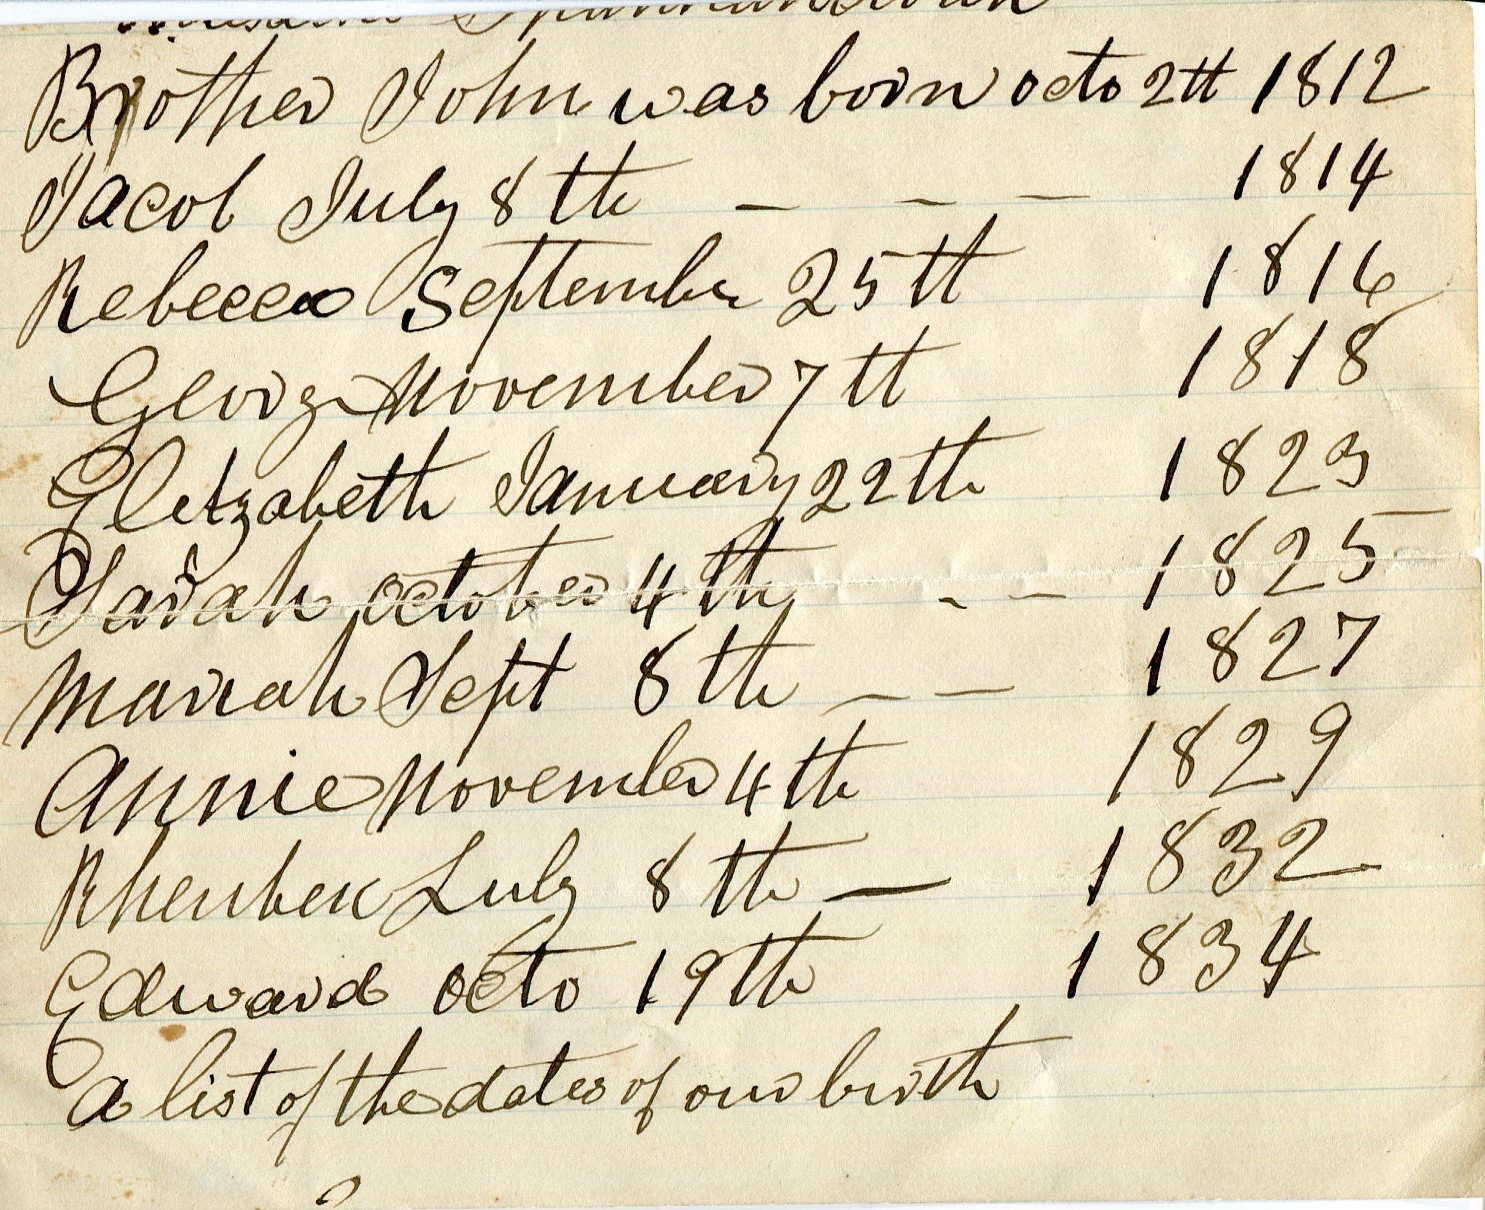 Brother John was born octo 2tt 1812
Jacob July 8th - - - 1814
Rebecca September 25tt 1816
George November 7tt 1818
Elizabeth January 22th 1823
Sarah october 4th - - 1825
Mariah Sept 8th - - 1827
Annie November 4th 1829
Rheuben July 8th - 1832
Edward octo 19th 1834
a list of the dates of our birth